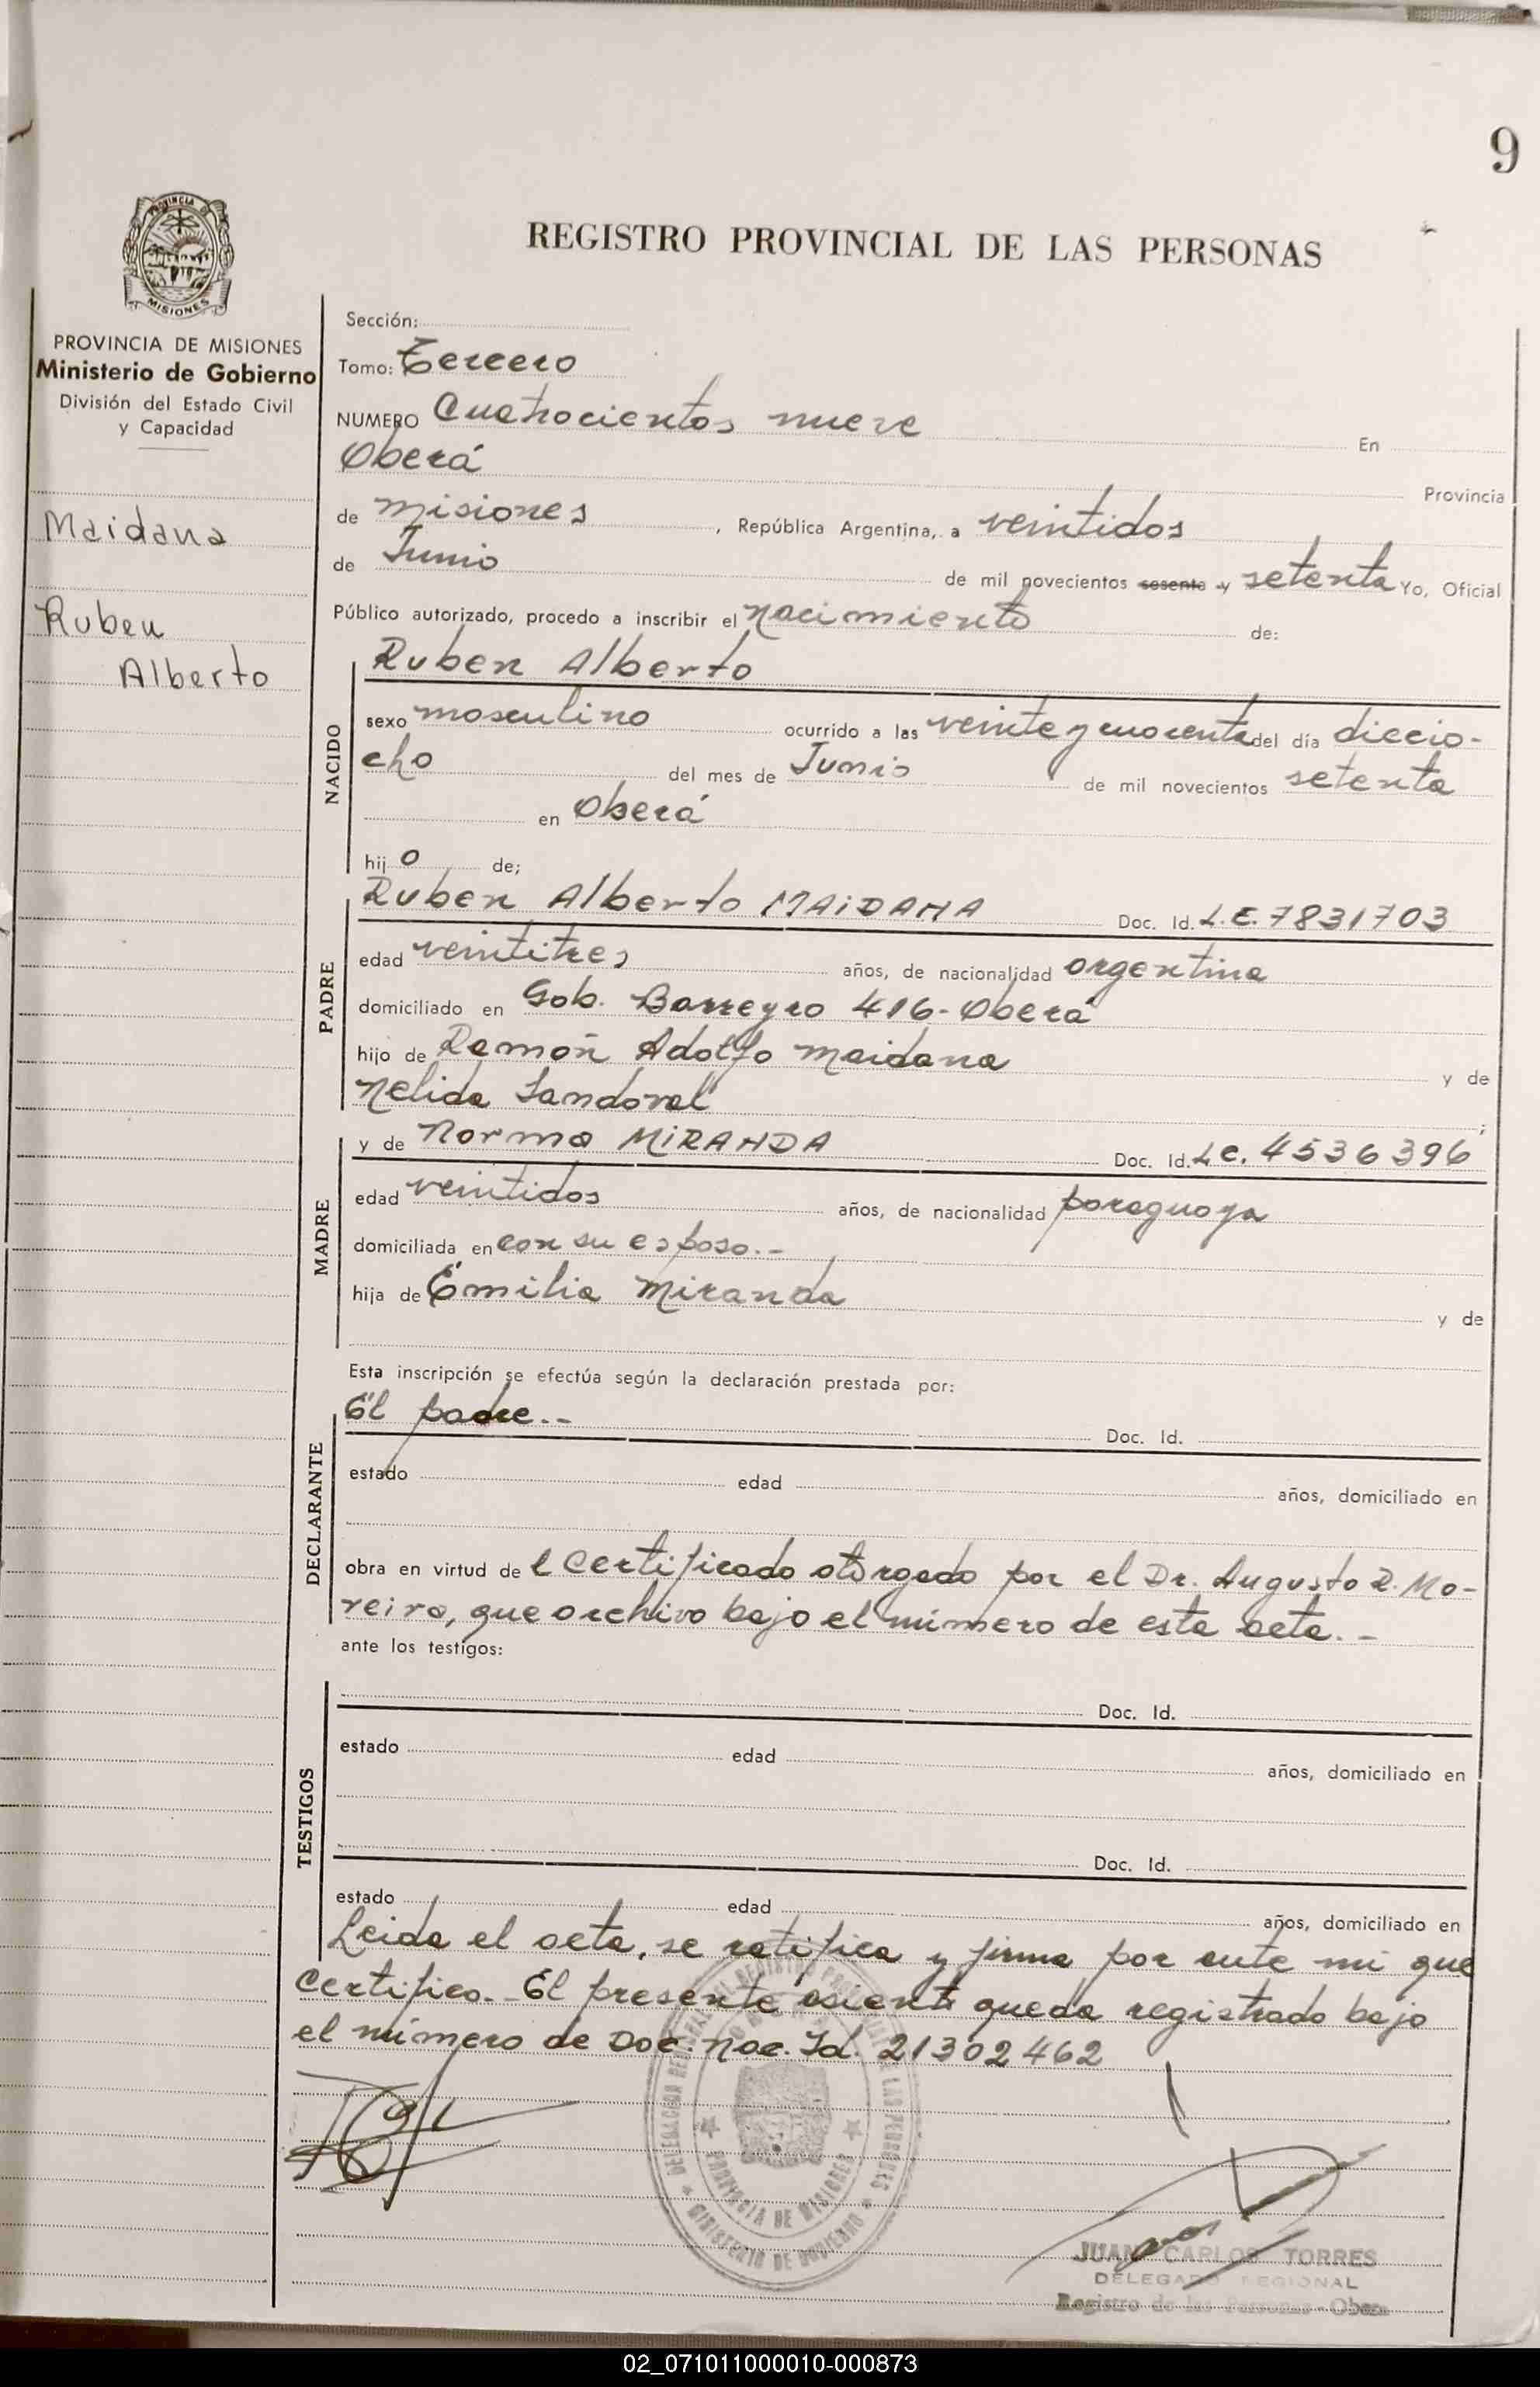 9
PROVINCIA DE
MISIONES
REGISTRO PROVINCIAL DE LAS PERSONAS
PROVINCIA DE MISIONES
Ministerio de Gobierno
División del Estado Civil
y Capacidad
Maidana
Ruben
Alberto
Sección:
Tomo: Tercero
NUMERO Cuatrocientos nueve En
Oberá Provincia
de Misiones, República Argentina, a veintidos
de Junio de mil novecientos sesenta y setenta Yo, Oficial
Público autorizado, procedo a inscribir el nacimiento de:
NACIDO
Ruben Alberto
sexo masculino ocurrido a las veinte y cuarenta del día diecio-
cho del mes de Junio de mil novecientos setenta
en Oberá
hijo de;
PADRE
Ruben Alberto MAIDANA Doc. Id. L.E. 7831703
edad veintitres años, de nacionalidad argentina
domiciliado en Gob. Barreyro 416-Oberá
hijo de Ramón Adolfo Maidana y de
Nelida Sandoval;
MADRE
y de Norma MIRANDA Doc. Id. L.C. 4536396
edad veintidos años, de nacionalidad paraguaya
domiciliada en con su esposo.-
hija de Emilia Miranda y de
Esta inscripción se efectúa según la declaración prestada por:
DECLARANTE
El padre.- Doc. Id.
estado edad años, domiciliado en
obra en virtud de l certificado otorgado por el Dr. Augusto R. Mo-
reira, que archivo bajo el número de esta acta.-
ante los testigos:
TESTIGOS
Doc. Id.
estado edad años, domiciliado en
Doc. Id.
estado edad años, domiciliado en
Leida el acta, se ratifica y firma por ante mi que
certifico.- El presente asiento queda registrado bajo
el número de Doc. Nac. Id. 21302462
REGISTRO PROVINCIAL DE LAS PERSONAS
PROVINCIA DE MISIONES
MINISTERIO DE GOBIERNO
JUAN CARLOS TORRES
DELEGADO REGIONAL
Registro de las Personas - Oberá
02_071011000010-000873